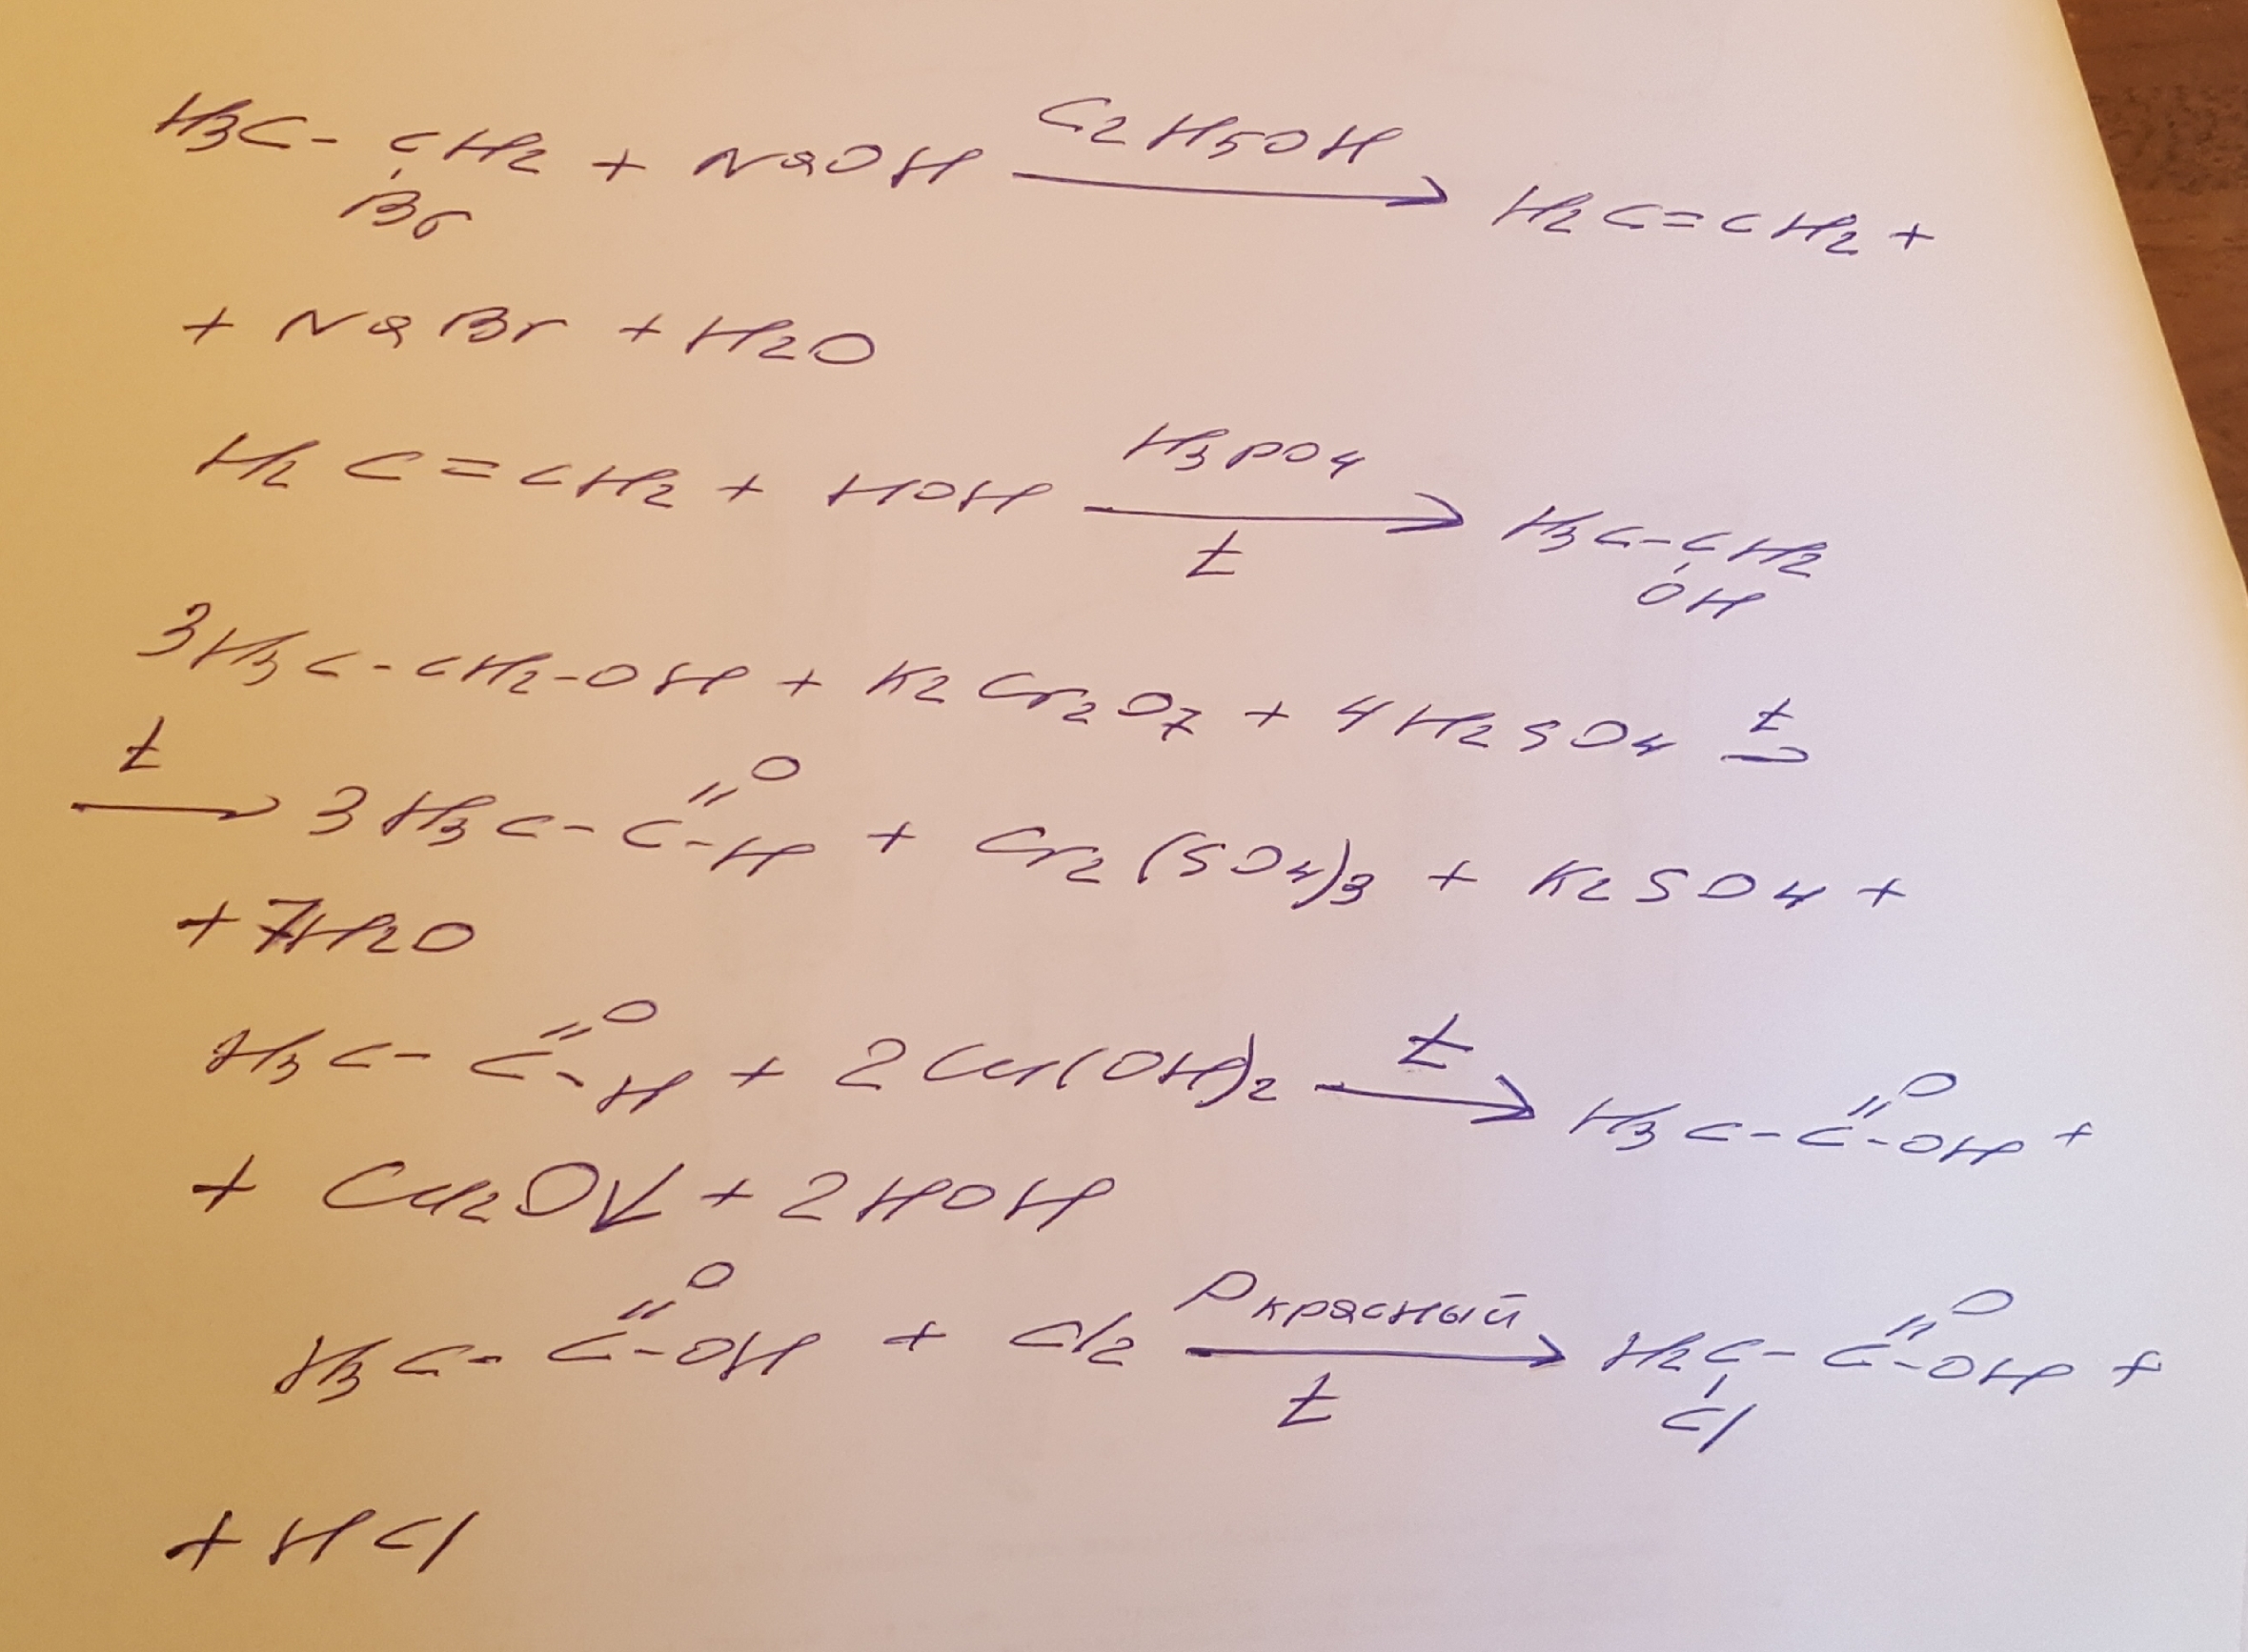 H3C-CH2 + NaOH C2H5OH→ H2C=CH2 +
Br
+ NaBr + H2O
H2C=CH2 + HOH H3PO4→ H3C-CH2
t
OH
3H3C-CH2-OH + K2Cr2O7 + 4H2SO4 t→
t→ 3H3C-C=O-H + Cr2(SO4)3 + K2SO4 +
+ 7H2O
H3C-C=O-H + 2Cu(OH)2 t→ H3C-C=O-OH +
+ Cu2O↓ + 2HOH
H3C-C=O-OH + Cl2 Pкрасный→ H2C-C=O-OH +
t
Cl
+ HCl